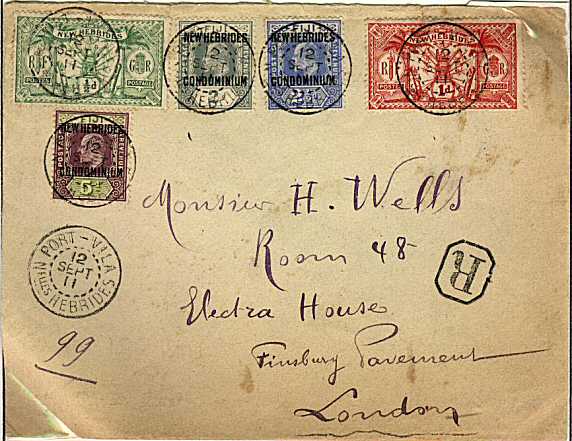 NEW HEBRIDES
RF
GR
POSTES
POSTAGE
½d
FIJI
NEW HEBRIDES
CONDOMINIUM
12
SEPT
FIJI
NEW HEBRIDES
CONDOMINIUM
12
SEPT
NEW HEBRIDES
RF
GR
POSTES
POSTAGE
1d
FIJI
NEW HEBRIDES
CONDOMINIUM
5d
POSTAGE
Monsieur H. Wells
Room 48
Electra House
Finsbury Pavement
London
PORT-VILA
12
SEPT
11
HEBRIDES
R
99